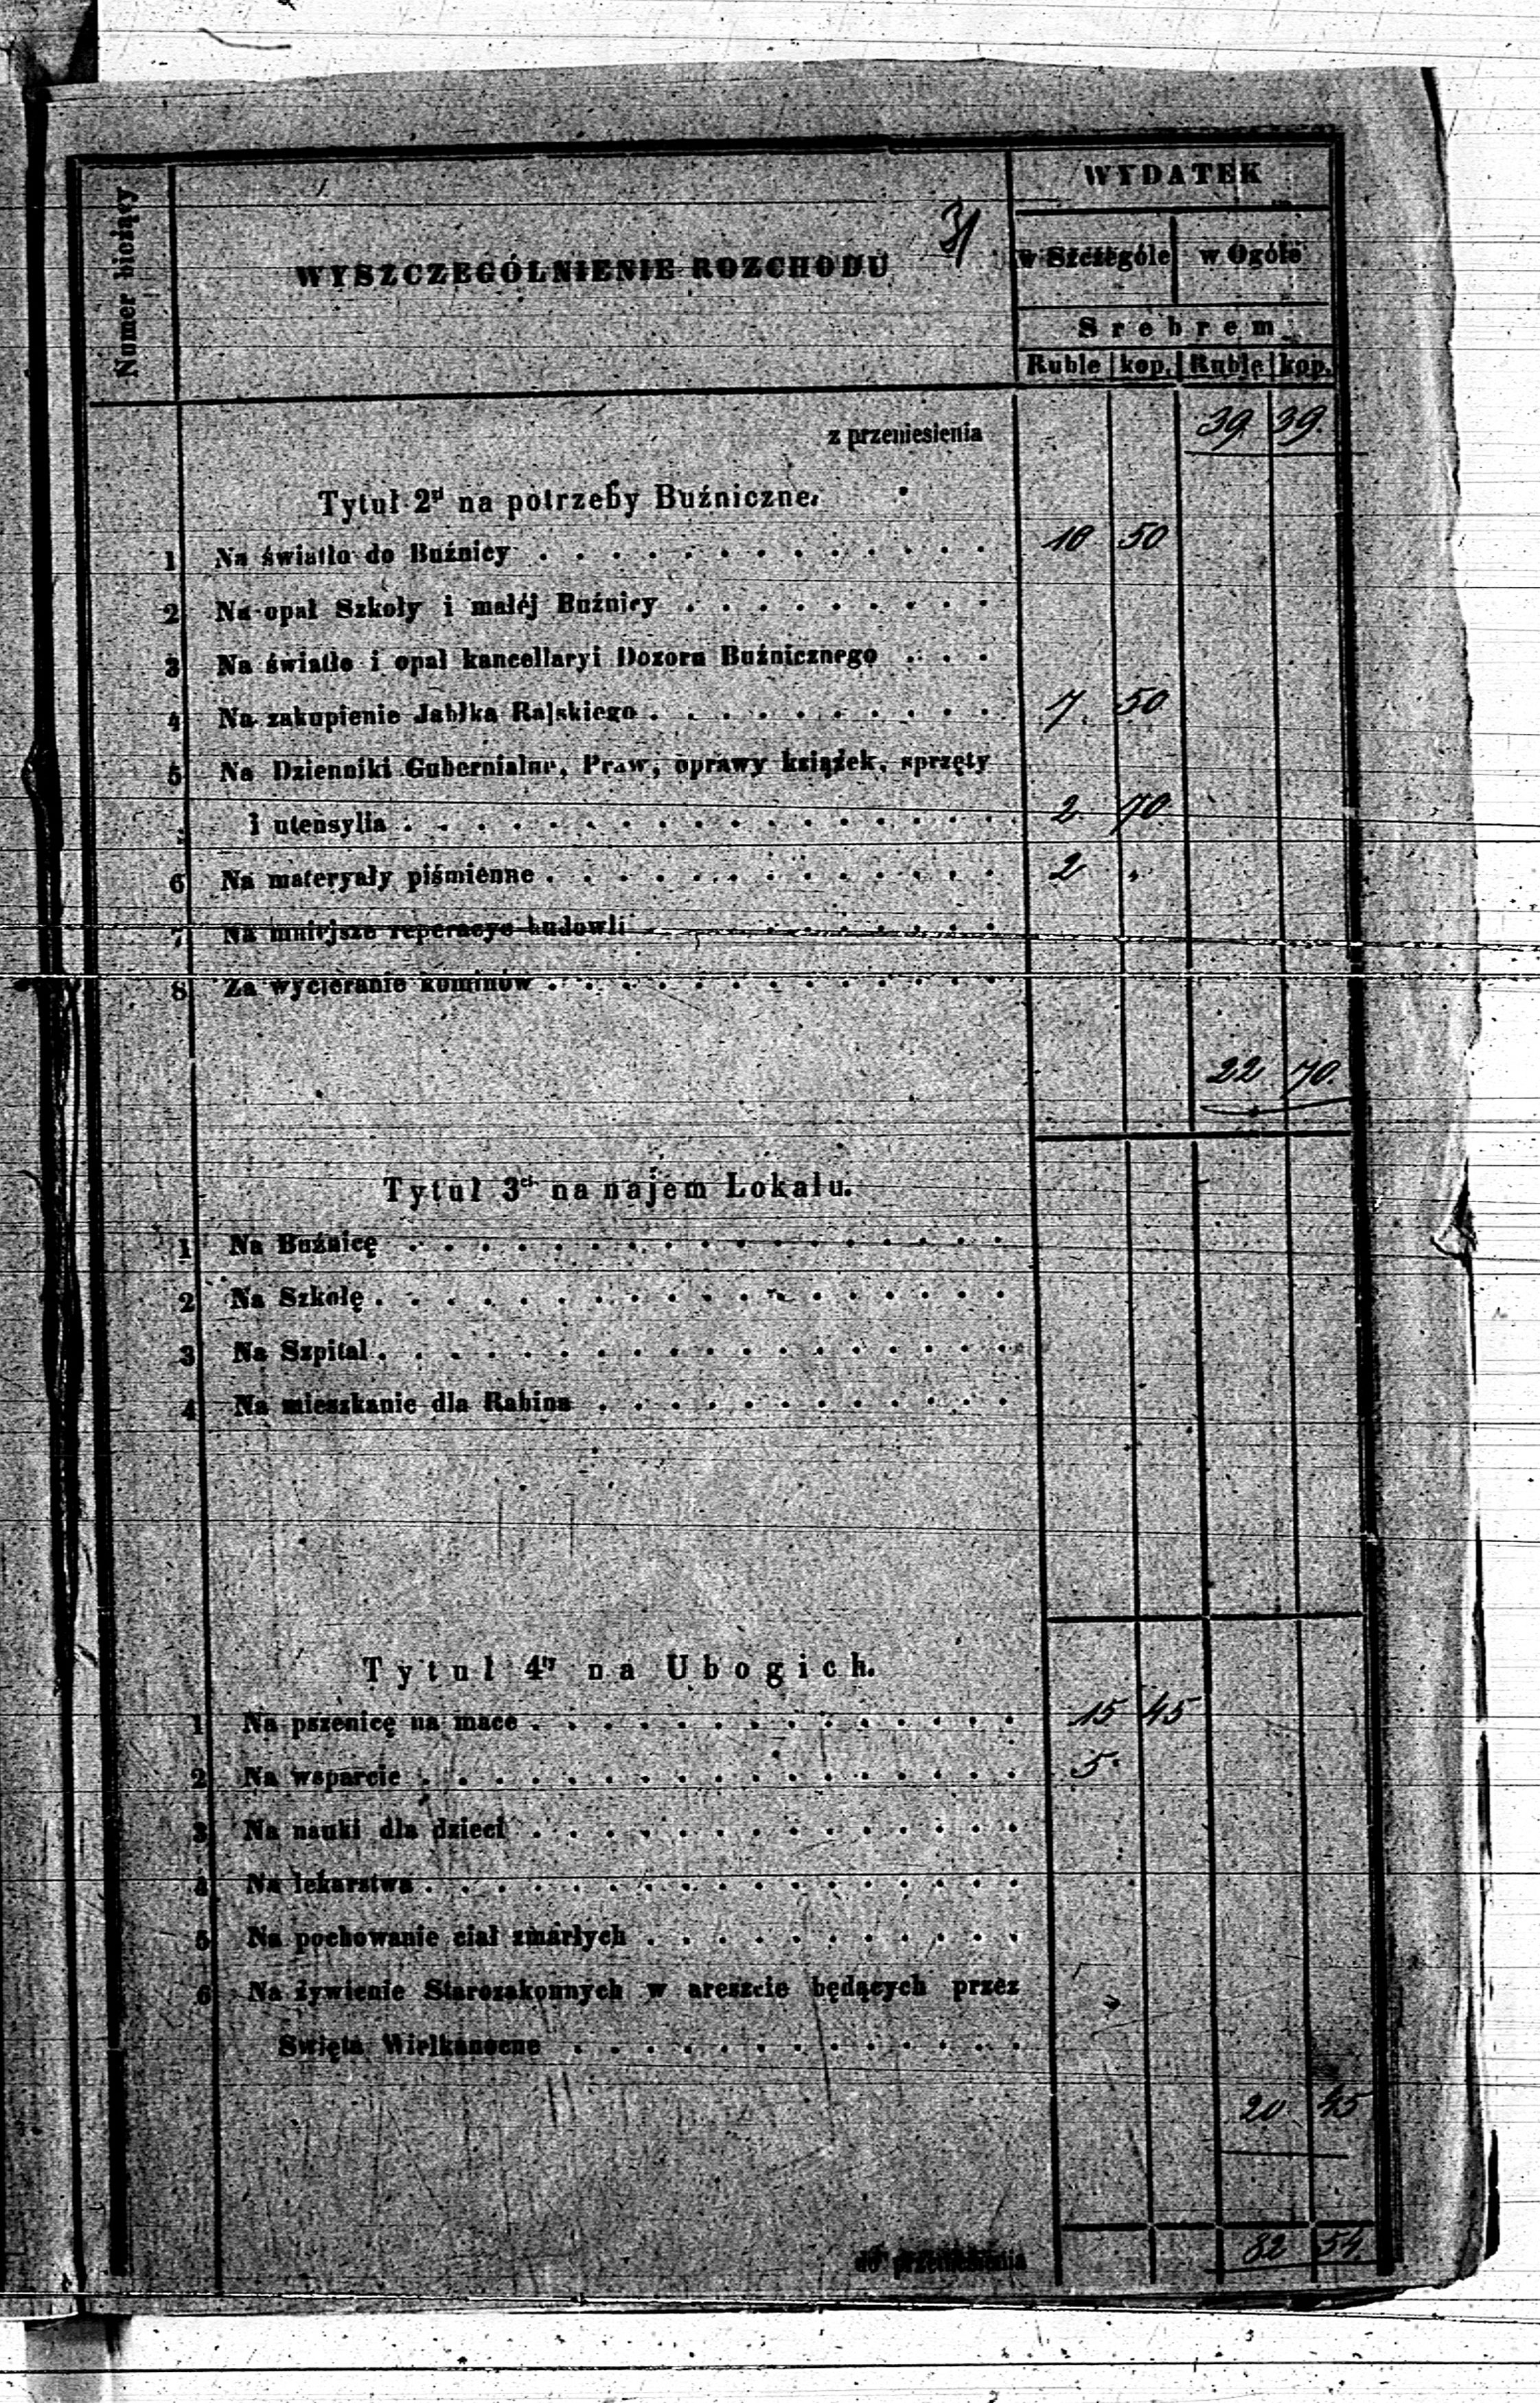 Numer bieżący
WYSZCZEGÓLNIENIE ROZCHODU
31
WYDATEK
w Szczególe w Ogóle
Srebrem
Ruble kop. Ruble kop.
z przeniesienia 39 39.
Tytuł 2gi na potrzeby Buźniczne.
1 Na światło do Buźnicy 10 50
2 Na opał Szkoły i małéj Buźnicy
3 Na światło i opał kancellaryi Dozoru Buźnicznego
4 Na zakupienie Jabłka Rajskiego 7. 50
5 Na Dzienniki Gubernialne, Praw, oprawy książek, sprzęty
i utensylia 2 70
6 Na materyały piśmienne 2 .
7 Na mniejsze reperacye budowli
8 Za wycieranie kominów
22 70.
Tytuł 3ci na najem Lokalu.
1 Na Buźnicę
2 Na Szkołę
3 Na Szpital
4 Na mieszkanie dla Rabina
Tytuł 4ty na Ubogich.
1 Na pszenicę na mace 15 45
2 Na wsparcie 5.
3 Na nauki dla dzieci
4 Na lekarstwa
5 Na pochowanie ciał zmarłych
6 Na żywienie Starozakonnych w areszcie będących przez
Święta Wielkanocne
20 45
do przeniesienia 82 54.